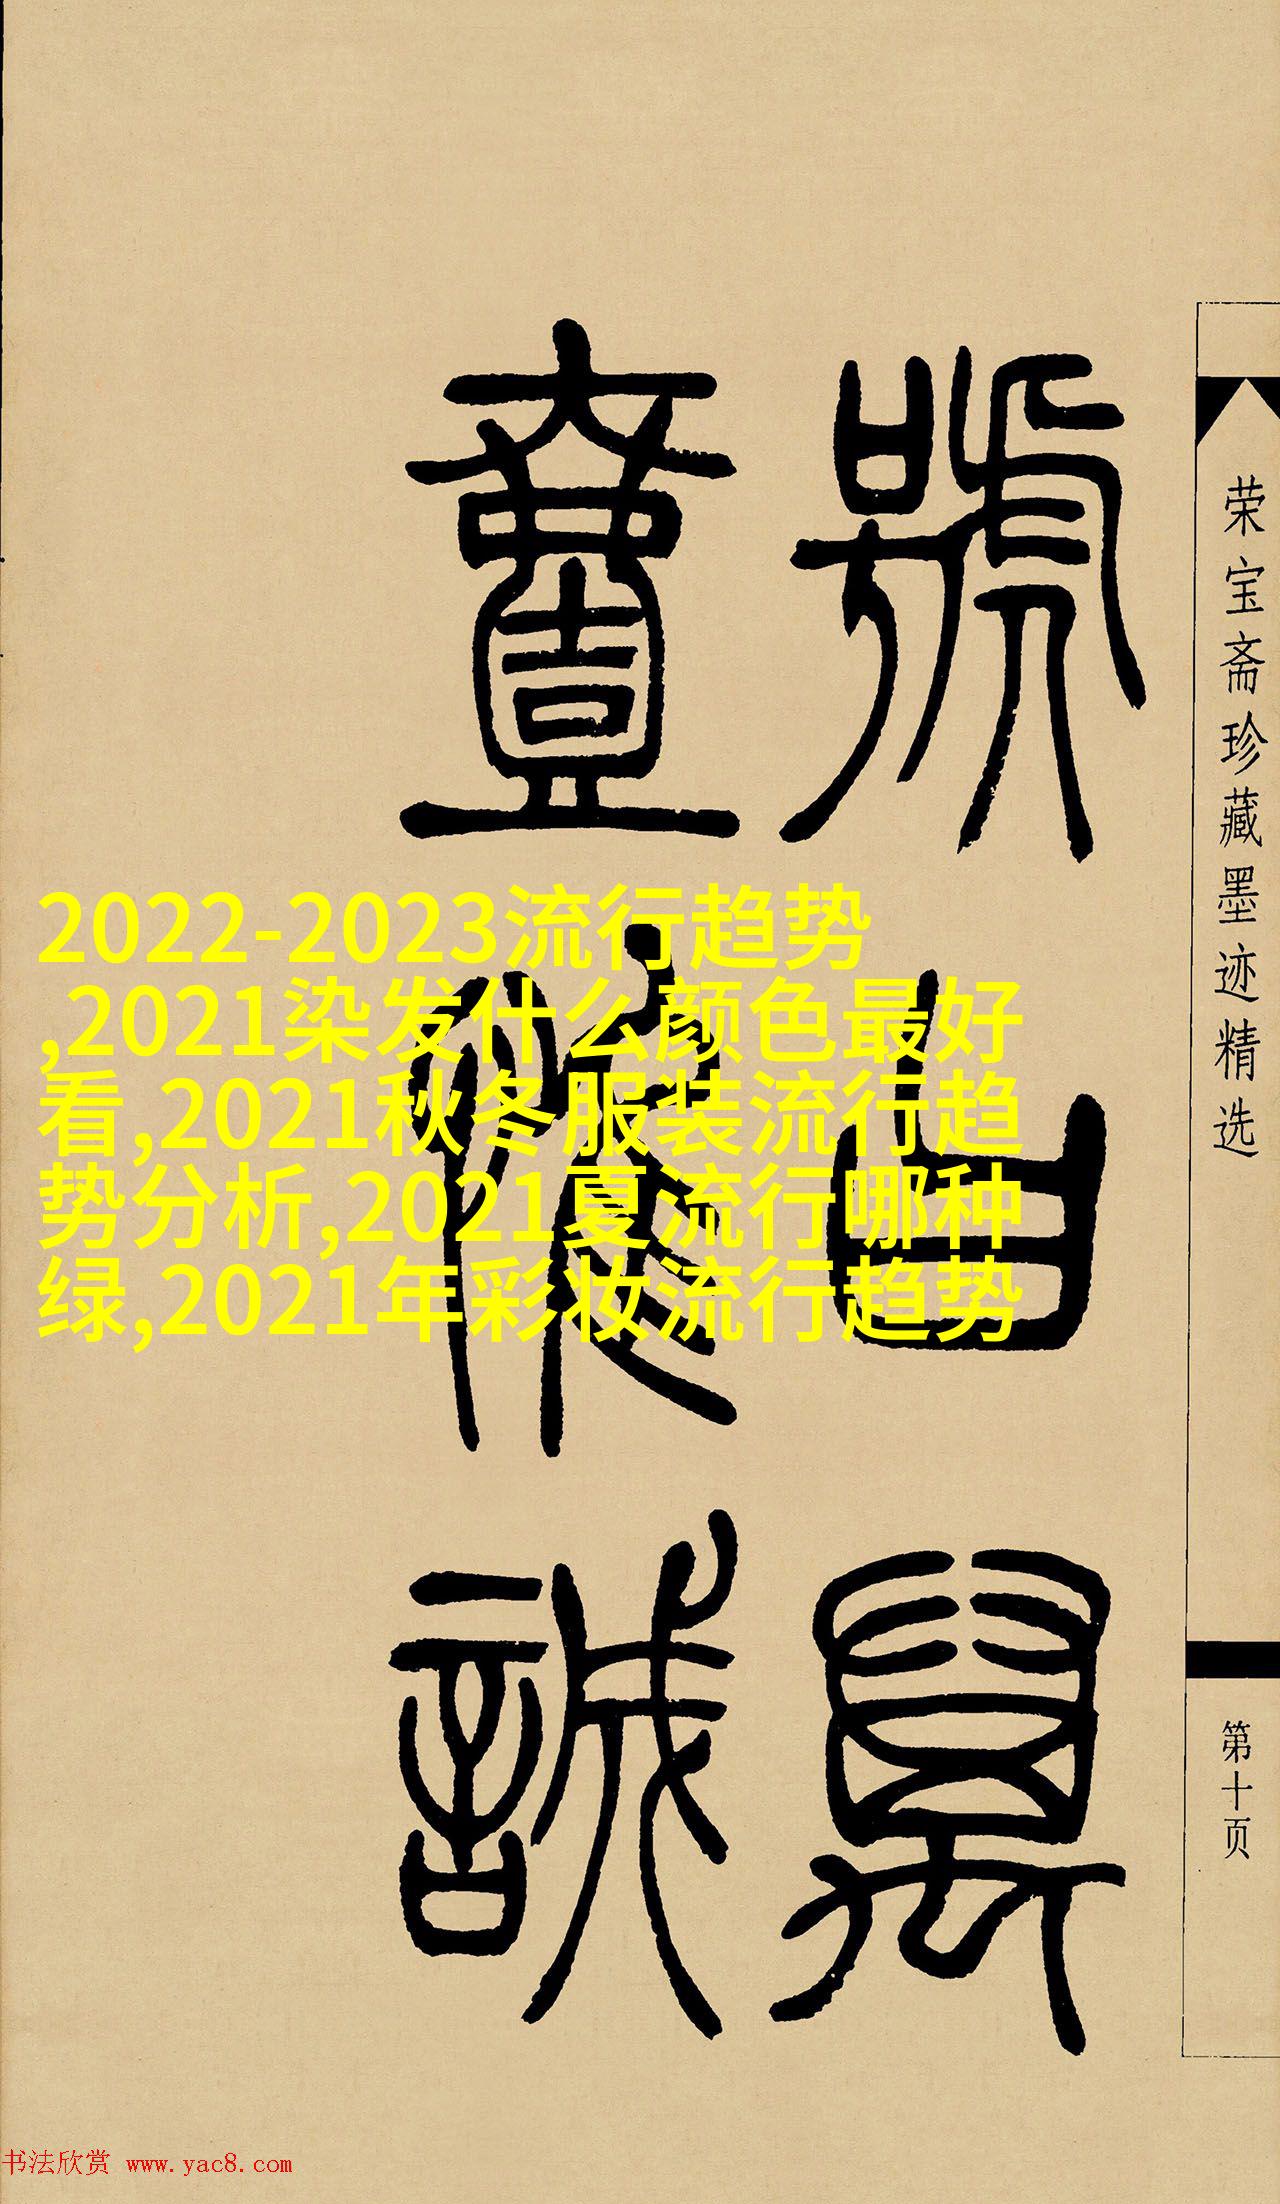 號
誠
荣宝斋珍藏墨迹精选
第十页
2022-2023流行趋势
,2021染发什么颜色最好
看,2021秋冬服装流行趋
势分析,2021夏流行哪种
绿,2021年彩妆流行趋势
书法欣赏 www.yac8.com